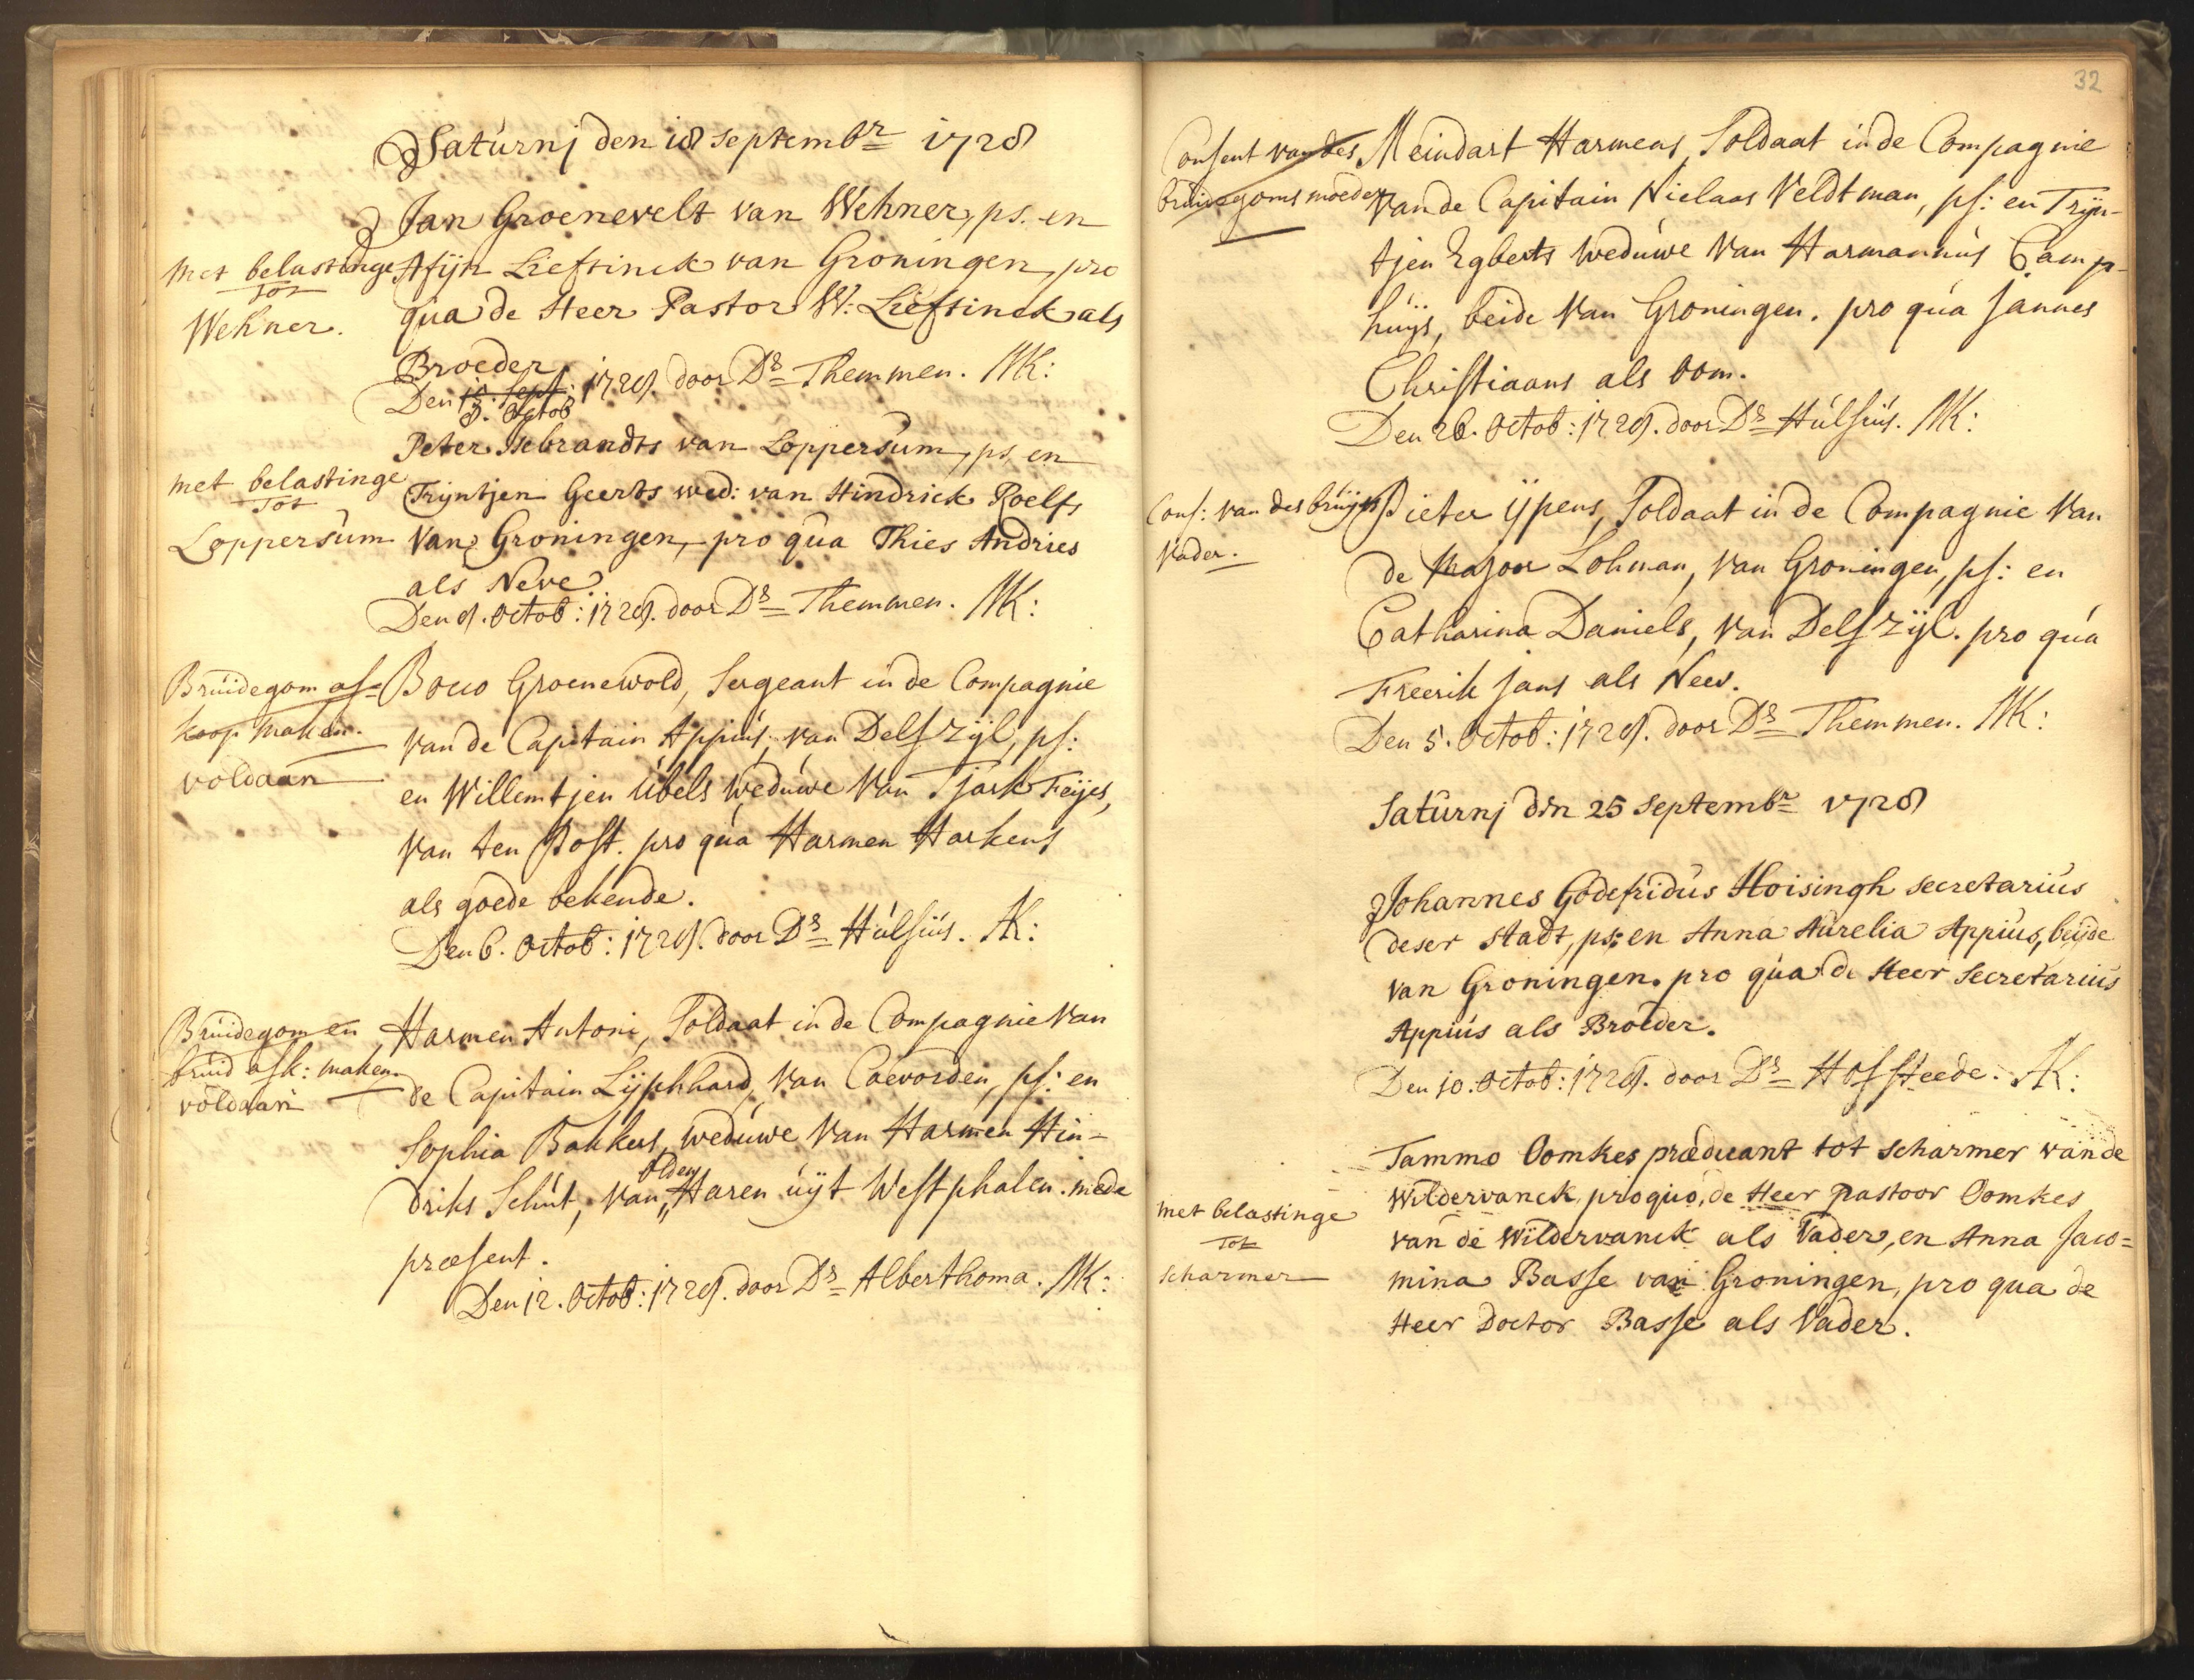 Saturnj den 18 septembr 1728
Jan Groenevelt van Wehner, ps. en
met belastinge
tot
Wehner.
Afijn Lieftinck van Groningen, pro
qua de Heer Pastor W: Lieftinck als
Broeder.
Den 18. Sept: 1728. door Ds Themmen. MK:
3. Octob
Peter Isebrandts van Loppersum, ps. en
met belastinge
tot
Loppersum
Trijntjen Geerts wed: van Hindrick Roelfs
van Groningen, pro qua Thies Andries
als Neve
Den 9. Octob: 1728. door Ds Themmen. MK:
Bruidegom af=
koop maken.
voldaan
Bouo Groenewold, Sergeant in de Compagnie
van de Capitain Appius, van Delfzijl, ps:
en Willemtjen Ubels weduwe van Tjark Feijes,
van ten Post. pro qua Harmen Harkens
als goede bekende.
Den 6. Octob: 1728. door Ds Hulsius. AK:
Bruidegom en
bruid afk: maken.
voldaan
Harmen Antoni, Soldaat in de Compagnie van
de Capitain Lijphhard, van Coevorden, ps: en
Sophia Bakkers, weduwe van Harmen Hin-
olden
driks Schut, van Haren uijt Westphalen. mede
præsent.
Den 12. Octob: 1728. door Ds Alberthoma. MK:
32
Consent van des
bruidegoms moeder
Meindart Harmens, Soldaat in de Compagnie
van de Capitain Nielaas Veldtman, ps: en Trijn-
tjen Egberts weduwe van Harmannus Camp-
huijs, beide van Groningen. pro qua Jannes
Christiaans als oom.
Den 26. Octob: 1728. door Ds Hulsius. MK:
Cons: van des bruijds
Vader.
Pieter ijpens, Soldaat in de Compagnie van
de Major Lohman, van Groningen, ps: en
Catharina Daniels, van Delfzijl. pro qua
Freerik Jans als Neev.
Den 5. Octob: 1728. door Ds Themmen. MK:
Saturnj den 25 Septembr 1728
Johannes Godefridus Hoisingh secretarius
deser stadt, ps: en Anna Aurelia Appius, beijde
van Groningen. pro qua de Heer Secretarius
Appius als Broeder.
Den 10. Octob: 1728. door Ds Hofsteede. AK:
Tammo Oomkes prædicant tot scharmer van de
met belastinge
tot
scharmer
Wildervanck, pro quo, de Heer pastoor Oomkes
van de Wildervanck als Vader, en Anna Jaco=
mina Basse van Groningen, pro qua de
Heer Doctor Basse als Vader.